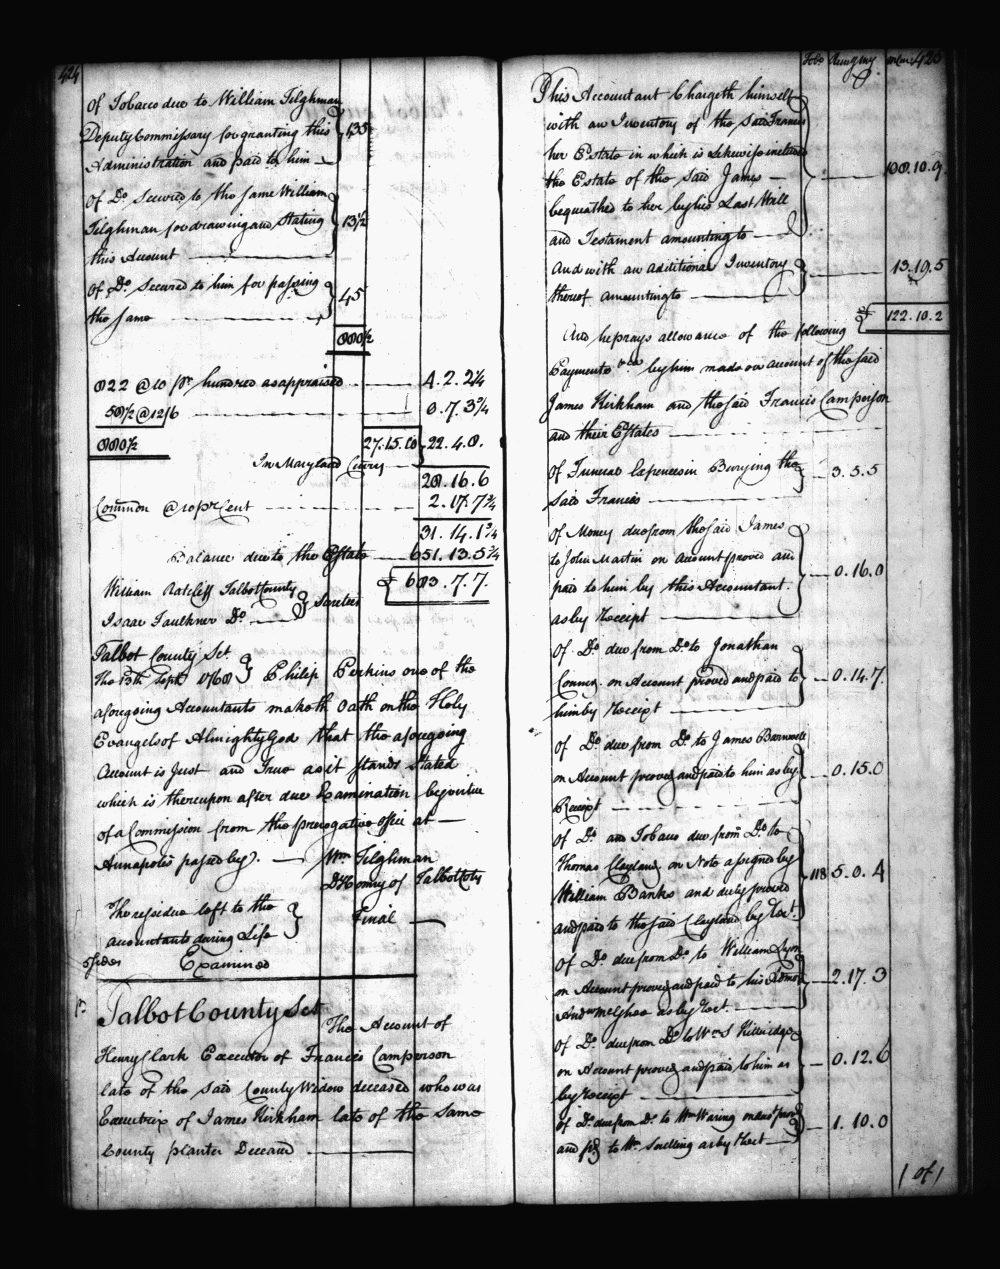 424
Of Tobacco due to William Tilghman
Deputy Commissary for granting this 435
Administration and paid to him
Of Do. Secured to the same William
Tilghman for drawing and Stating 13½
this Account
Of Do. Secured to him for passing 45
the same
880½
822 @ 10 pr. hundred as appraised 4.2.2¼
58½ @ 12/6 0.7.3¾
880½ 27.15.10 22.4.0.
In Maryland Curry
28.16.6
Common @ 10 pr Cent 2.17.7¾
31.14.1¾
Balance due to the Estate 651.13.5¼
William Ratcliff Talbot County £683.7.7.
Isaac Faulkner Do. Sureties
Talbot County Sct.
The 13th Sept. 1768 Philip Perkins one of the
aforegoing Accountants maketh Oath on the Holy
Evangels of Almighty God that the aforegoing
Account is Just and True as it stands Stated
which is thereupon after due Examination by virtue
of a Commission from the prerogative office at
Annapolis passed by. Wm Tilghman
D Comry of Talbot Coty
The residue left to the Final
accountants during Life
Examined
Talbot County Sct
The Account of
Henry Clark Executor of Francis Camperson
late of the said County Widow deceased who was
Executrix of James Kirkham late of the same
County planter Deceased
Tobo. Currency 425
This Accountant Chargeth himself
with an Inventory of the said Francis
her Estate in which is Likewise included
the Estate of the said James 108.10.9
bequeathed to her by his Last Will
and Testament amounting to
And with an additional Inventory 13.19.5
thereof amounting to
£122.10.2
And he prays allowance of the following
Payments &ca by him made on account of the said
James Kirkham and the said Francis Camperson
and their Estates
Of Funeral Expences in Burying the 3.5.5
said Francis
Of Money due from the said James
to John Martin on account proved and
paid to him by this Accountant 0.16.0
as by Receipt
Of Do. due from Do. to Jonathan
on Account proved and paid to 0.14.7.
him by Receipt
Of Do. due from Do. to James Barnwell
on Account proved and paid to him as by 0.15.0
Receipt
Of Do. and Tobacco due from Do. to
Thomas Clayland on Note assigned by 118 5.0.4
William Banks and duly proved
and paid to the said Clayland by Rect.
Of Do. due from Do. to William Lyon
on Account proved and paid to his Admor 2.17.3
Andw McGhee as by Rect.
Of Do. due from Do. to Wm. S
on Account proved and paid to him as 0.12.6
by Receipt
Of Do. due from Do. to Wm Waring on acct. proved
and pd. to Wm. Snelling as by Rect 1.10.0
/ Of /